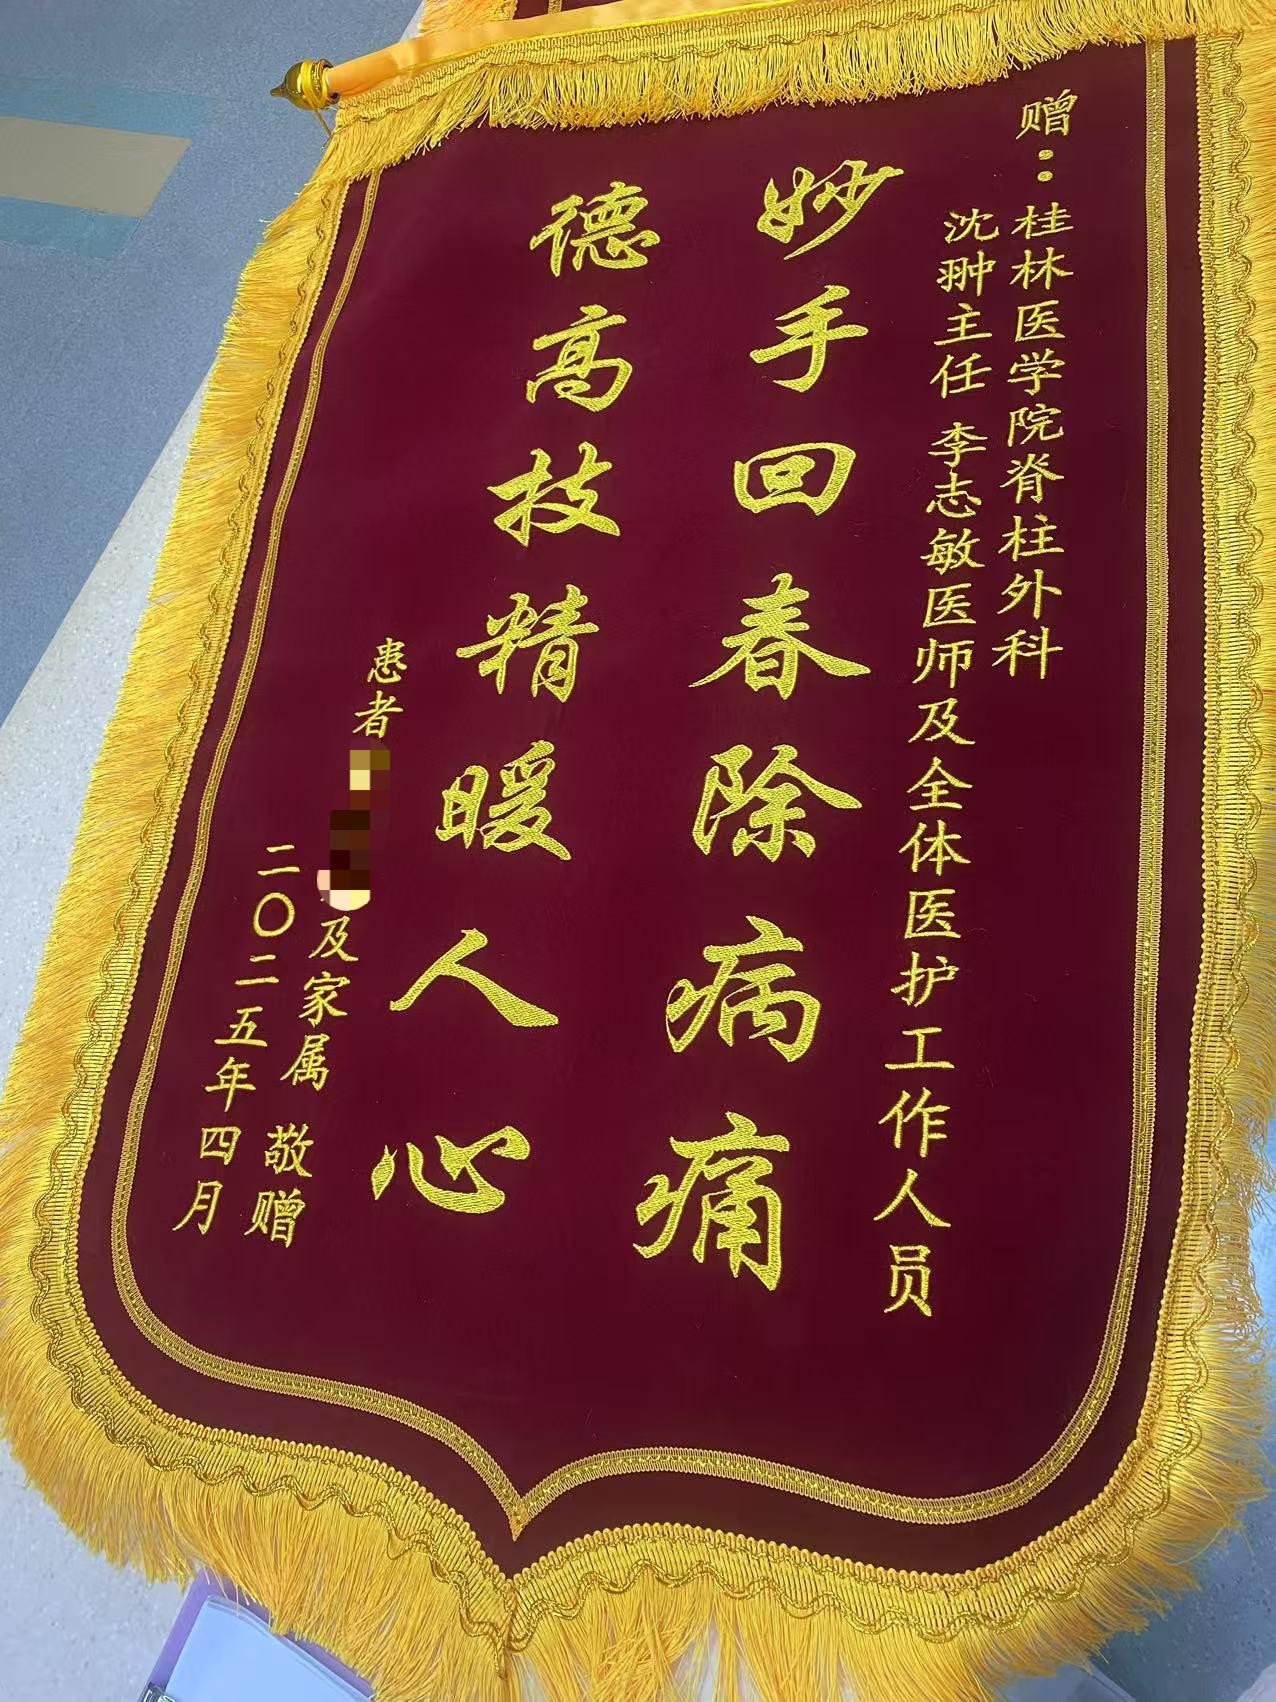 赠：桂林医学院脊柱外科
沈翀主任 李志敏医师及全体医护工作人员
妙手回春除病痛
德高技精暖人心
患者
及家属 敬赠
二〇二五年四月